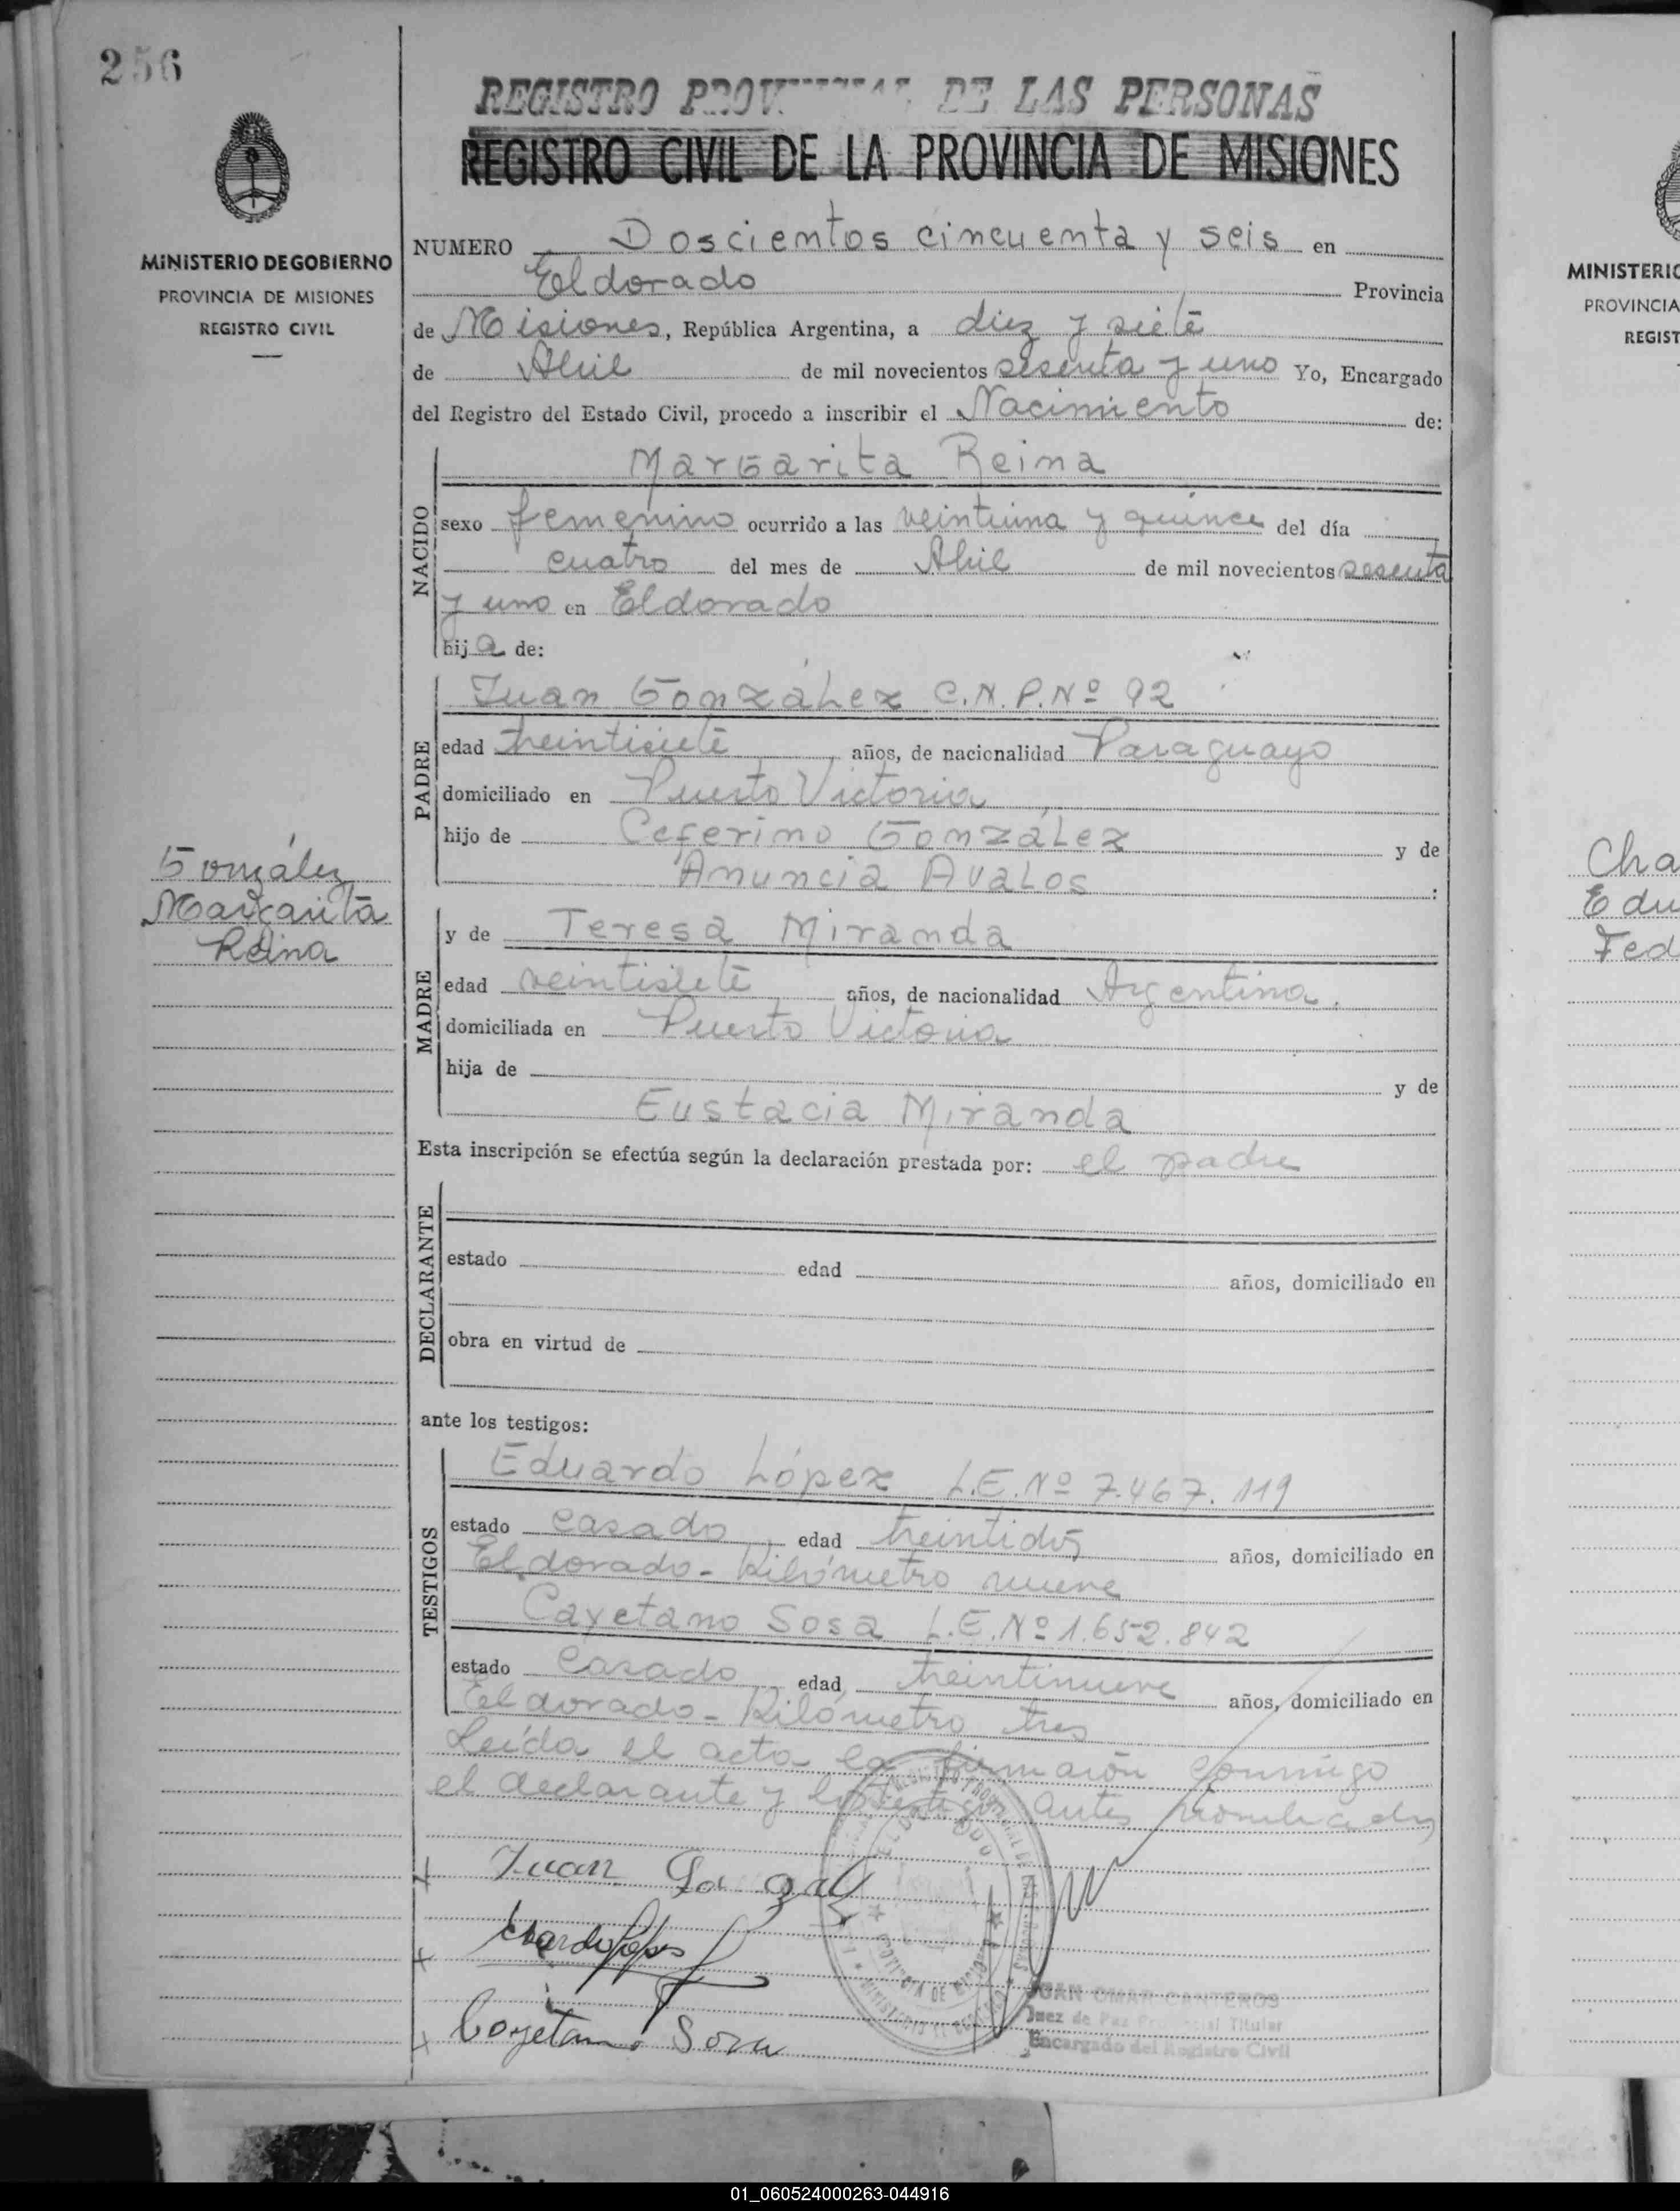 256
REGISTRO PROVINCIAL DE LAS PERSONAS
REGISTRO CIVIL DE LA PROVINCIA DE MISIONES
MINISTERIO DE GOBIERNO
PROVINCIA DE MISIONES
REGISTRO CIVIL
NUMERO Doscientos cincuenta y seis en
Eldorado Provincia
de Misiones, República Argentina, a diez y siete
de Abril de mil novecientos sesenta y uno Yo, Encargado
del Registro del Estado Civil, procedo a inscribir el Nacimiento de:
NACIDO
Margarita Reina
sexo femenino ocurrido a las veintiuna y quince del día
cuatro del mes de Abril de mil novecientos sesenta
y uno en Eldorado
hija de:
PADRE
Juan González C.N.P.Nº 92
edad treintisiete años, de nacionalidad Paraguayo
domiciliado en Puerto Victoria
hijo de Ceferino González y de
Anuncia Avalos
González
Margarita
Reina
MADRE
y de Teresa Miranda
edad veintisiete años, de nacionalidad Argentina.
domiciliada en Puerto Victoria
hija de y de
Eustacia Miranda
Esta inscripción se efectúa según la declaración prestada por: el padre
DECLARANTE
estado edad años, domiciliado en
obra en virtud de
ante los testigos:
TESTIGOS
Eduardo López L.E.Nº 7.467.119
estado casado edad treintidós años, domiciliado en
Eldorado - Kilómetro nueve
Cayetano Sosa L.E.Nº 1.652.842
estado casado edad treintinueve años, domiciliado en
Eldorado - Kilómetro tres
Leída el acta la firmarón conmigo
el declarante y los testigos antes nombrados
Juan
Eduardo López
Cayetano Sosa
ELDORADO
PROVINCIA DE MISIONES
JUAN OMAR CANTEROS
Juez de Paz Provincial Titular
Encargado del Registro Civil
MINISTERIO
PROVINCIA
REGIST
Cha
Edu
Fed
01_060524000263-044916